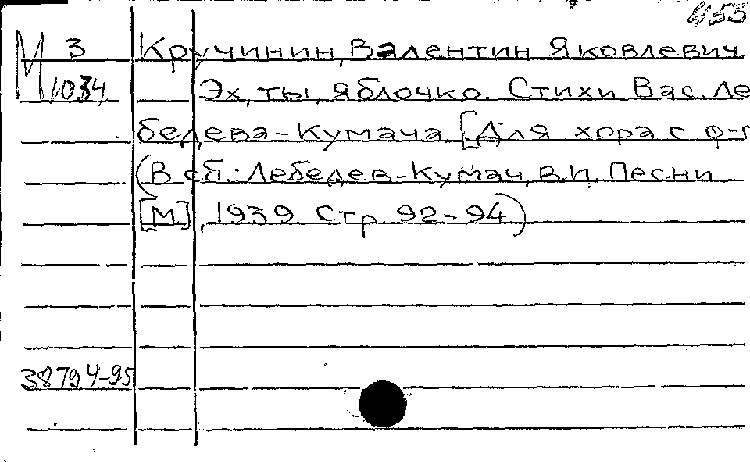 455
М 3 Кручинин, Валентин Яковлевич
1034 Эх, ты, яблочко. Стихи Вас. Ле
бедева-Кумача. [Для хора с ф-п
(В сб.: Лебедев-Кумач, В.И. Песни
[М], 1939. Стр. 92-94)
38794-95